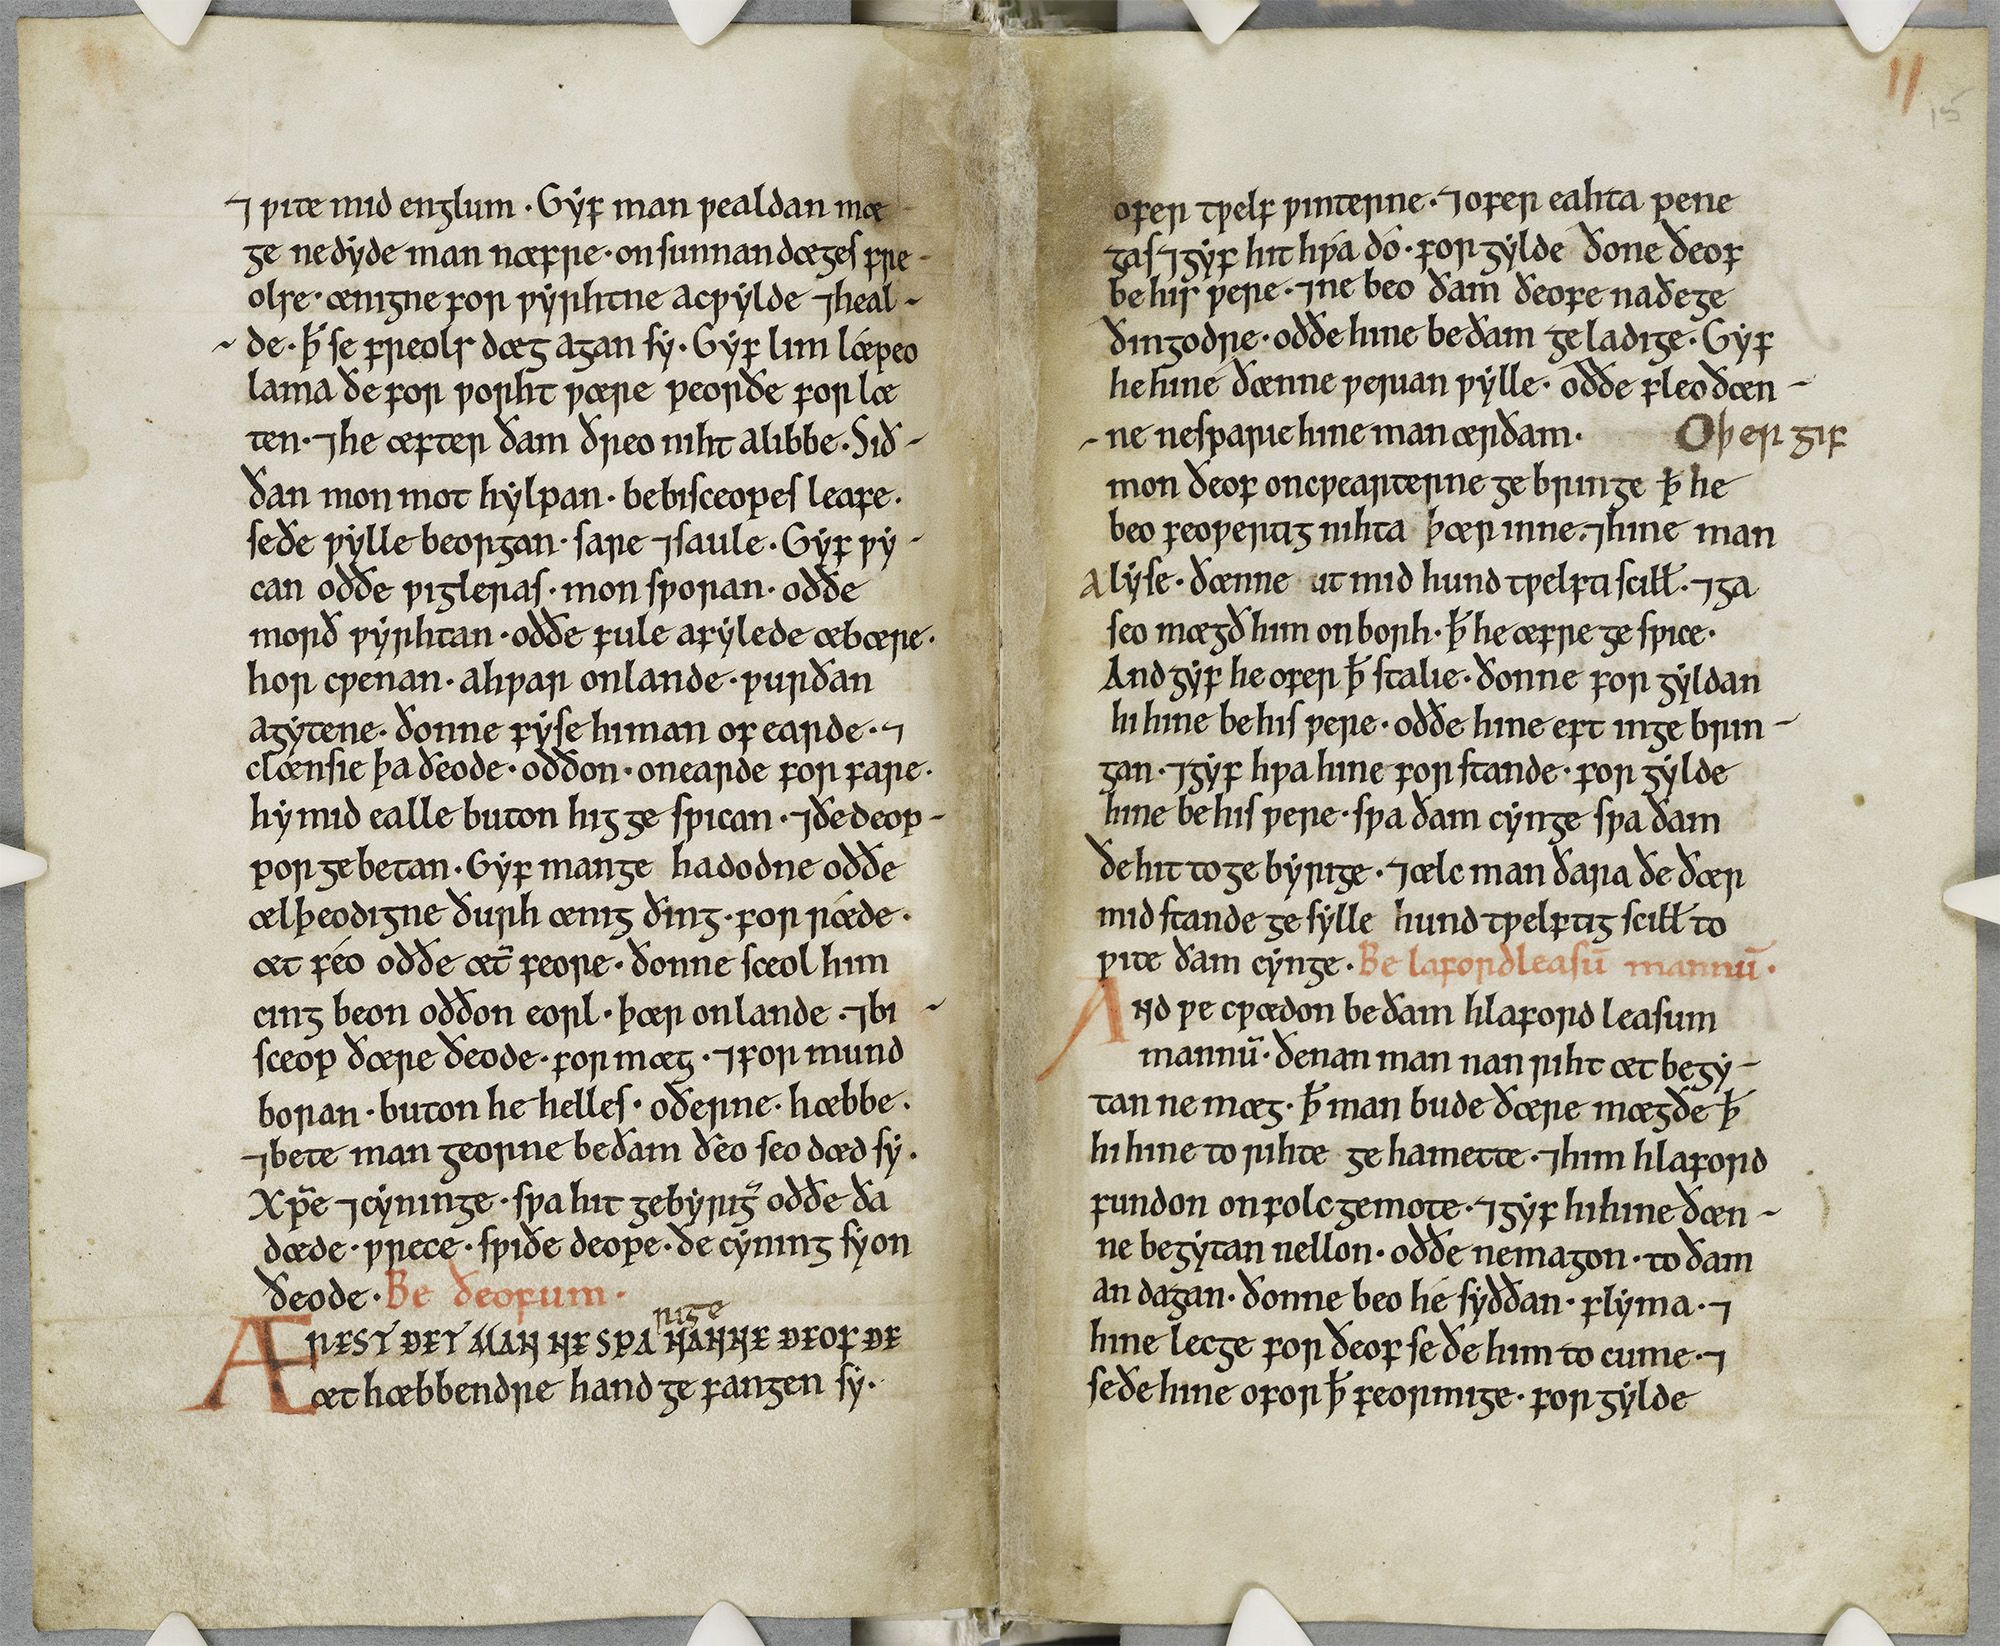 ⁊ ƿite mid englum · Gẏf man ƿealdan mæ
ge nedẏde man næfre · on sunnandæges fre -
olse · ænigne for ƿẏrhtne acƿẏlde ⁊heal -
- de · ꝥ se freols dæg agan sẏ · Gẏf lim lǽƿeo
lama ðe for ƿorht ƿære ƿeorðe for læ
ten · ⁊he æfter ðam ðreo niht alibbe · Sið -
ðan mon mot hẏlpan · be bisceopes leafe ·
seðe ƿẏlle beorgan · sare ⁊saule · Gẏf ƿẏ -
can oððe ƿigleras · mon sƿoran · oððe
morð ƿẏrhtan · oððe fule afẏlede æbære ·
hor cƿenan · ahƿar onlande · ƿurðan
agẏtene · ðonne fẏse hi man of earde · ⁊
clænsie þa ðeode · oððon · onearde for fare ·
hẏ mid ealle buton hig ge sƿican · ⁊ðe deop -
ƿor gebetan · Gẏf man ge hadodne oððe
ælþeodigne ðurh ænig ðing · for rǽde ·
æt féo oððe æt feore · ðonne sceol him
cing beon oððon eorl · þær onlande · ⁊bi -
sceop ðære ðeode · for mæg · ⁊ for mund
boran · buton he helles · oðerne · hæbbe ·
⁊bete man georne be ðam ðeo seo dæd sẏ ·
Xp̄e ⁊cẏninge · sƿa hit gebẏrig oððe ða
dæde · ƿrece · sƿiðe deope · ðe cẏning sẏ on
ðeode · Be ðeofum ·
rige
ÆREST ÐET MAN NE SPA NANNE ÐEOF ÐE
æt hæbbendre hand ge fangen sẏ ·
11
15
ofer tƿelf ƿinterne · ⁊ofer eahta pene
gas ⁊gẏf hit hƿá dó · for gẏlde ðone ðeof
be his ƿere · ⁊ne beo ðam ðeofe naðe ge
ðingodre · oððe hine be ðam ge ladige · Gẏf
he hine ðænne ƿerian ƿẏlle · oððe fleo ðæn -
- ne ne sparie hine man ær ðam · Oþer gif
mon ðeof on cƿearterne ge bringe ꝥ he
beo feoƿertig nihta þær inne · ⁊hine man
alẏse · ðænne ut mid hund tƿelfti scill̄ · ⁊ga
seo mægð him on borh · ꝥ he æfre ge sƿice ·
And gẏf he ofer ꝥ stalie · ðonne for gẏldan
hi hine be his ƿere · oððe hine eft inge brin -
gan · ⁊gẏf hƿa hine for stande · for gẏlde
hine be his ƿere · sƿa ðam cẏnge sƿa ðam
ðe hit to ge bẏrige · ⁊ælc man ðara ðe ðær
mid stande ge sẏlle hund tƿelftig scill̄ to
ƿite ðam cẏnge · Be lafordleasū mannū ·
And ƿe cƿædon be ðam hlaford leasum
mannū · ðe nan man nan riht æt begẏ -
tan ne mæg · ꝥ man bude ðære mægðe ꝥ
hi hine to rihte ge hamette · ⁊him hlaford
fundon on folc gemote · ⁊gẏf hi hine ðæn -
ne begẏtan nellon · oððe ne magon · to ðam
an dagan · ðonne beo hé sẏððan · flẏma · ⁊
hine lecge for ðeof se ðe him to cume · ⁊
seðe hine ofor ꝥ feormige · for gẏlde